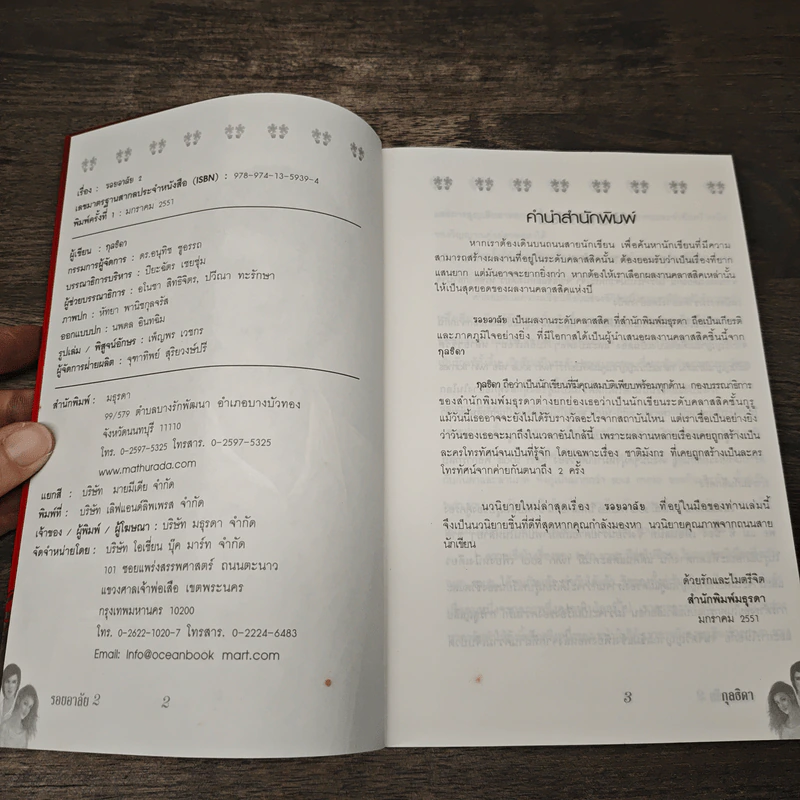 เรื่อง : รอยอาลัย 2
เลขมาตรฐานสากลประจำหนังสือ (ISBN) : 978-974-13-5939-4
พิมพ์ครั้งที่ 1 : มกราคม 2551
ผู้เขียน : กุลธิดา
กรรมการผู้จัดการ : ดร.อนุทิช ชูอรรถ
บรรณาธิการบริหาร : ปิยะฉัตร เชยชุ่ม
ผู้ช่วยบรรณาธิการ : อโนชา สิทธิจิตร, ปวีณา ทะรักษา
ภาพปก : หัทยา พานิชกุลจรัส
ออกแบบปก : นพดล อินทฉิม
รูปเล่ม / พิสูจน์อักษร : เพ็ญพร เวชกร
ผู้จัดการฝ่ายผลิต : จุฑาทิพย์ สุริยวงษ์ปรี
สำนักพิมพ์ : มธุรดา
99/579 ตำบลบางรักพัฒนา อำเภอบางบัวทอง
จังหวัดนนทบุรี 11110
โทร. 0-2597-5325 โทรสาร. 0-2597-5325
www.mathurada.com
แยกสี : บริษัท มายมีเดีย จำกัด
พิมพ์ที่ : บริษัท เลิฟแอนด์ลิพเพรส จำกัด
เจ้าของ / ผู้พิมพ์ / ผู้โฆษณา : บริษัท มธุรดา จำกัด
จัดจำหน่ายโดย : บริษัท โอเชี่ยน บุ๊ค มาร์ท จำกัด
101 ซอยแพร่งสรรพศาสตร์ ถนนตะนาว
แขวงศาลเจ้าพ่อเสือ เขตพระนคร
กรุงเทพมหานคร 10200
โทร. 0-2622-1020-7 โทรสาร. 0-2224-6483
Email: Info@oceanbook mart.com
รอยอาลัย 2 2
คำนำสำนักพิมพ์
หากเราต้องเดินบนถนนสายนักเขียน เพื่อค้นหานักเขียนที่มีความ
สามารถสร้างผลงานที่อยู่ในระดับคลาสสิคนั้น ต้องยอมรับว่าเป็นเรื่องที่ยาก
แสนยาก แต่มันอาจจะยากยิ่งกว่า หากต้องให้เราเลือกผลงานคลาสสิคเหล่านั้น
ให้เป็นสุดยอดของผลงานคลาสสิคแห่งปี
รอยอาลัย เป็นผลงานระดับคลาสสิค ที่สำนักพิมพ์มธุรดา ถือเป็นเกียรติ
และภาคภูมิใจอย่างยิ่ง ที่มีโอกาสได้เป็นผู้นำเสนอผลงานคลาสสิคชิ้นนี้จาก
กุลธิดา
กุลธิดา ถือว่าเป็นนักเขียนที่มีคุณสมบัติเพียบพร้อมทุกด้าน กองบรรณาธิการ
ของสำนักพิมพ์มธุรดาต่างยกย่องเธอว่าเป็นนักเขียนระดับคลาสสิคชั้นกูรู
แม้วันนี้เธออาจจะยังไม่ได้รับรางวัลอะไรจากสถาบันไหน แต่เราเชื่อเป็นอย่างยิ่ง
ว่าวันของเธอจะมาถึงในเวลาอันใกล้นี้ เพราะผลงานหลายเรื่องเคยถูกสร้างเป็น
ละครโทรทัศน์จนเป็นที่รู้จัก โดยเฉพาะเรื่อง ชาติมังกร ที่เคยถูกสร้างเป็นละคร
โทรทัศน์จากค่ายกันตนาถึง 2 ครั้ง
นวนิยายใหม่ล่าสุดเรื่อง รอยอาลัย ที่อยู่ในมือของท่านเล่มนี้
จึงเป็นนวนิยายชิ้นที่ดีที่สุดหากคุณกำลังมองหา นวนิยายคุณภาพจากถนนสาย
นักเขียน
ด้วยรักและไมตรีจิต
สำนักพิมพ์มธุรดา
มกราคม 2551
3 กุลธิดา